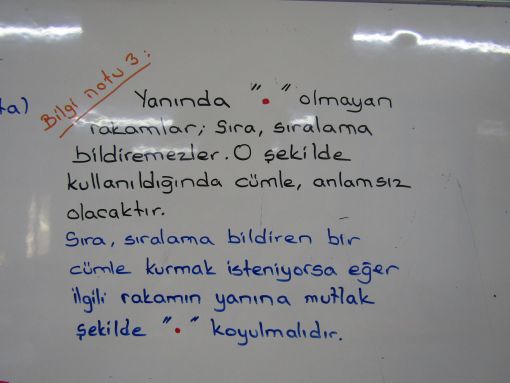 Bilgi notu 3:
ta) Yanında "." olmayan
rakamlar; Sıra, sıralama
bildiremezler. O şekilde
kullanıldığında cümle, anlamsız
olacaktır.
Sıra, sıralama bildiren bir
cümle kurmak isteniyorsa eğer
ilgili rakamın yanına mutlak
şekilde "." koyulmalıdır.